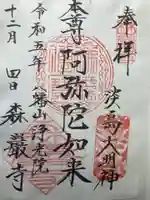 奉拝
淡島大明神
本尊阿弥陀如来
八幡山浄光院
森巖寺
令和五年
十二月四日